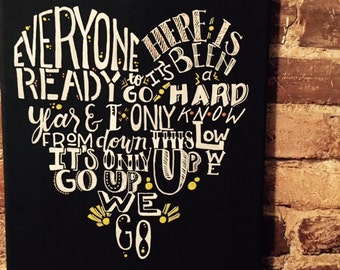 EVERYONE HERE IS
READY to GO IT'S BEEN a HARD
year & I ONLY KNOW
FROM down THIS LOW
IT'S ONLY UP WE
GO UP WE
GO